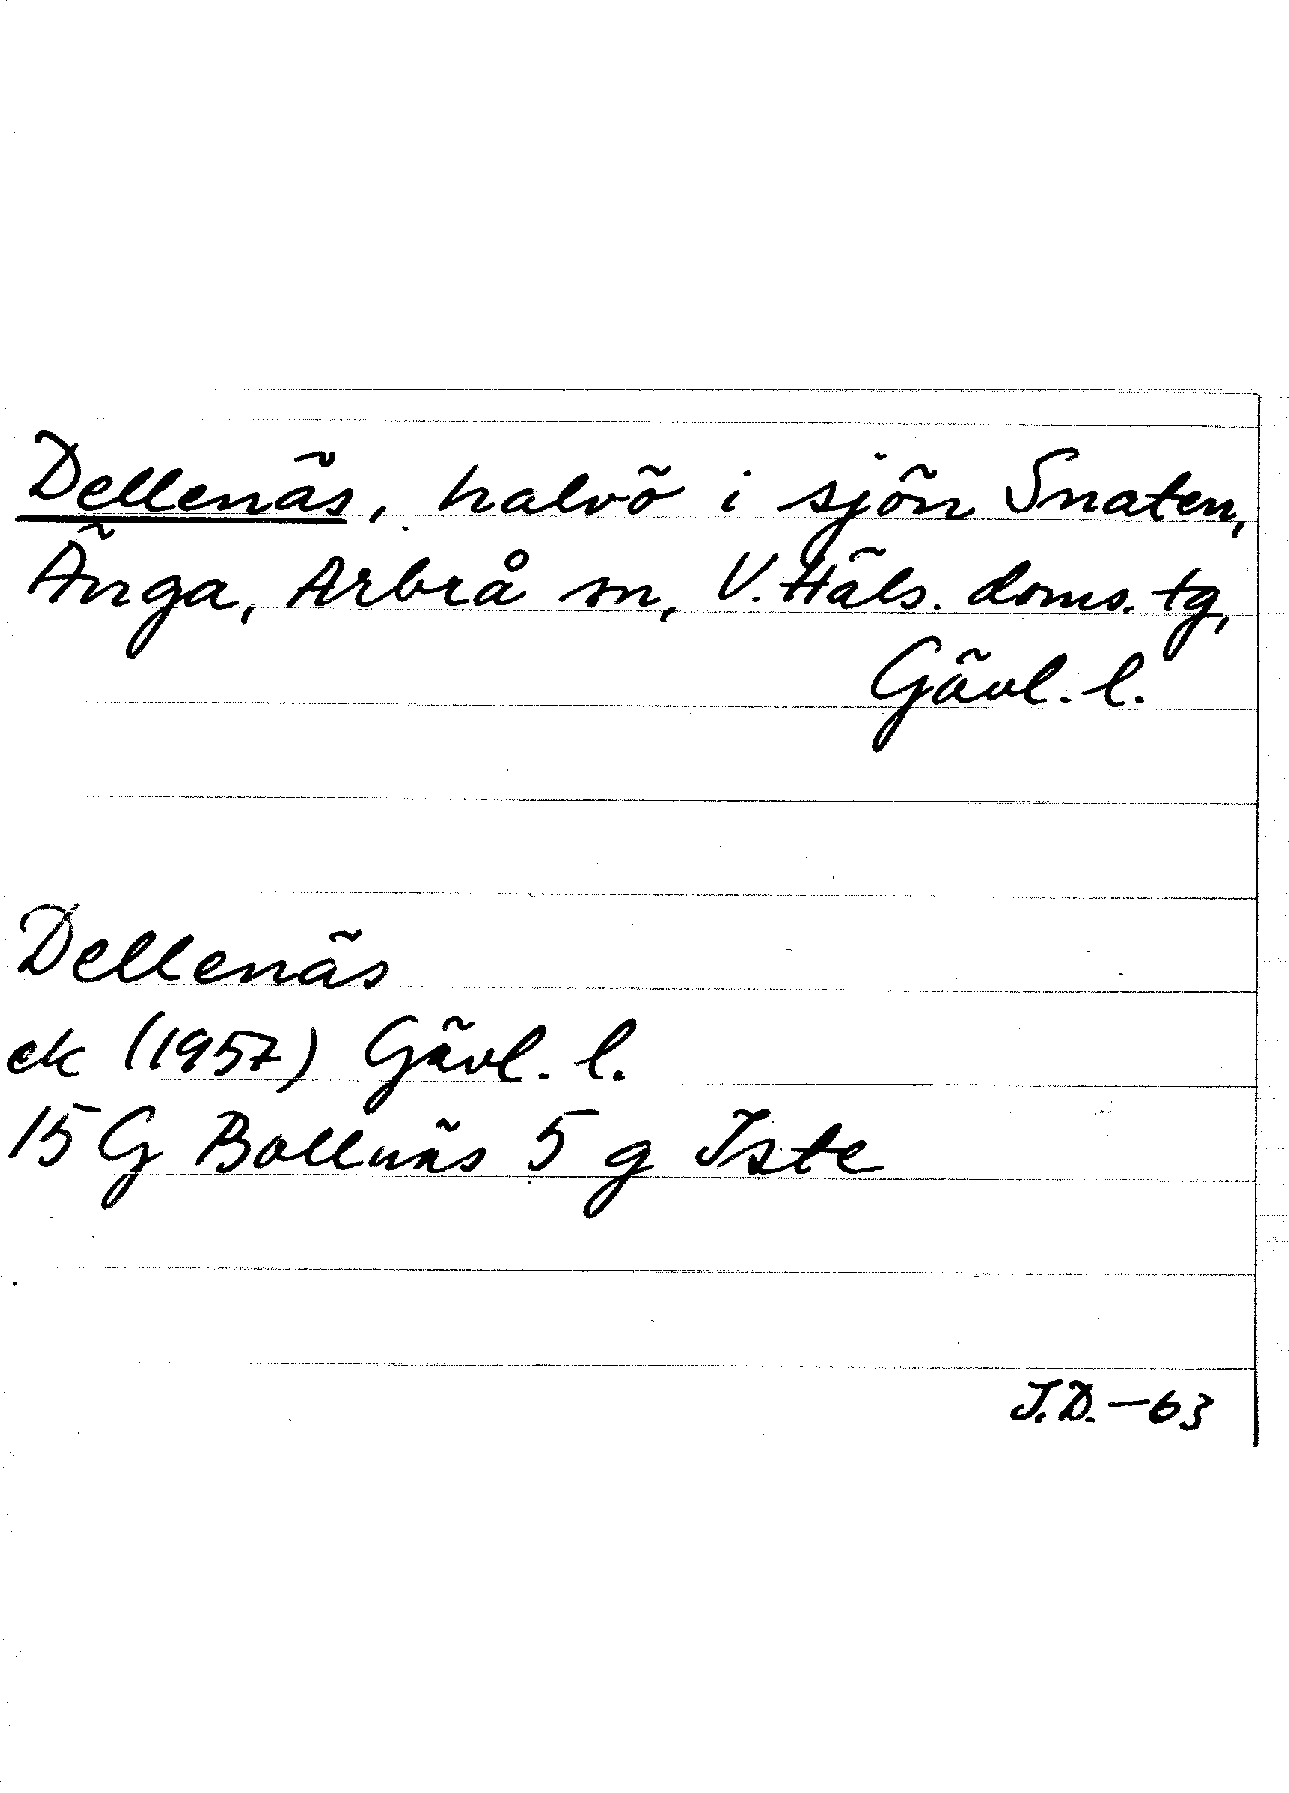 Dellenäs, halvö i sjön Snaten,
Änga, Arbrå sn, V. Häls. doms. tg,
Gävl. l.
Dellenäs
ek (1957) Gävl. l.
15 G Bollnäs 5 g Iste
J.D. - 63